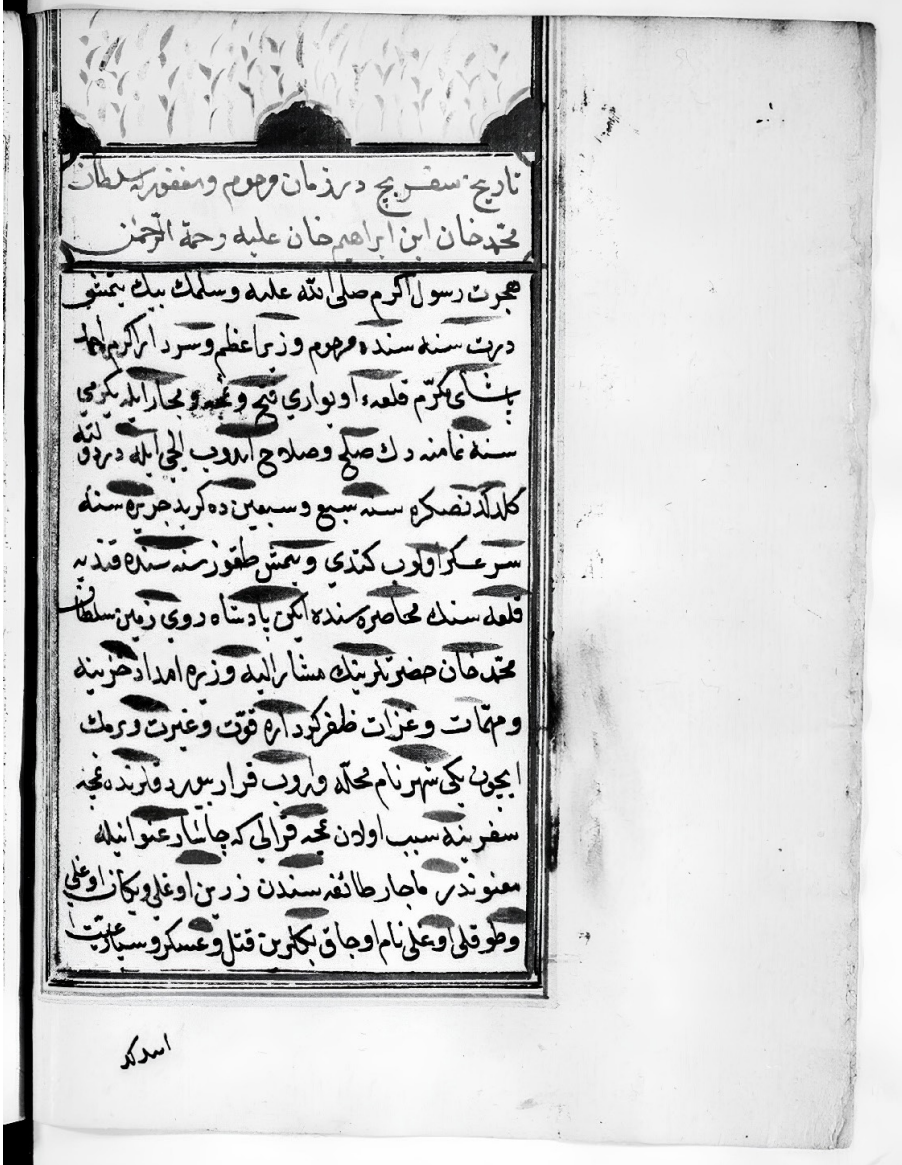 تاريخ سفر بچ در زمان مرحوم ومغفور له سلطان
محمّد خان ابن ابراهيم خان عليه رحمة الرّحمن
هجرت رسول اكرم صلى الله عليه وسلمك بيك يتمش
درت سنه سنده مرحوم وزير اعظم وسردار اكرم احمد
پاشاى مكرّم قلعهء اويوارى فتح ونمچه ومجار ايله يكرمى
سنه تمامنه دك صلح وصلاح ايدوب ايلچى ايله دردوّلته
كلدكدنصكره سنه سبع وسبعين ده كريد جزيره سنه
سر عسكر اولوب كتدي ويتمش طقوز سنه سنده قنديه
قلعه سنك محاصره سنده ايكن پادشاه روي زمين سلطان
محمّد خان حضرتلرينك مشار اليه وزيره امداد خزينه
ومهمّات وغزات ظفركرداره قوّت وغيرت ويرمك
ايچون يكى شهر نام محلّه واروب قرار بيوردقلرنده نمچه
سفرينه سبب اولان نمچه قرالي كه چاشار عنوانيله
معنوندر ماجار طائفه سندن زرين اوغلى ويكان اوغلى
وطوقلى اوغلى نام اوجاق بكلرين قتل وعسكر وسپاه رعيت